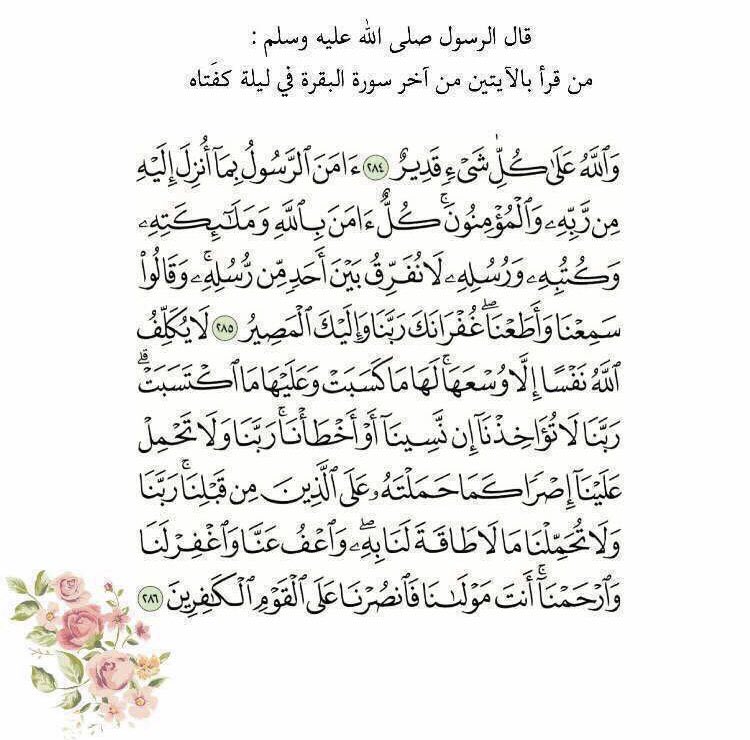 قال الرسول صلى الله عليه وسلم :
من قرأ بالآيتين من آخر سورة البقرة في ليلة كفَتاه
وَٱللَّهُ عَلَىٰ كُلِّ شَىْءٍ قَدِيرٌ ٢٨٤ ءَامَنَ ٱلرَّسُولُ بِمَآ أُنزِلَ إِلَيْهِ
مِن رَّبِّهِۦ وَٱلْمُؤْمِنُونَ ۚ كُلٌّ ءَامَنَ بِٱللَّهِ وَمَلَـٰٓئِكَتِهِۦ
وَكُتُبِهِۦ وَرُسُلِهِۦ لَا نُفَرِّقُ بَيْنَ أَحَدٍ مِّن رُّسُلِهِۦ ۚ وَقَالُوا۟
سَمِعْنَا وَأَطَعْنَا ۖ غُفْرَانَكَ رَبَّنَا وَإِلَيْكَ ٱلْمَصِيرُ ٢٨٥ لَا يُكَلِّفُ
ٱللَّهُ نَفْسًا إِلَّا وُسْعَهَا ۚ لَهَا مَا كَسَبَتْ وَعَلَيْهَا مَا ٱكْتَسَبَتْ ۗ
رَبَّنَا لَا تُؤَاخِذْنَآ إِن نَّسِينَآ أَوْ أَخْطَأْنَا ۚ رَبَّنَا وَلَا تَحْمِلْ
عَلَيْنَآ إِصْرًا كَمَا حَمَلْتَهُۥ عَلَى ٱلَّذِينَ مِن قَبْلِنَا ۚ رَبَّنَا
وَلَا تُحَمِّلْنَا مَا لَا طَاقَةَ لَنَا بِهِۦ ۖ وَٱعْفُ عَنَّا وَٱغْفِرْ لَنَا
وَٱرْحَمْنَآ ۚ أَنتَ مَوْلَىٰنَا فَٱنصُرْنَا عَلَى ٱلْقَوْمِ ٱلْكَـٰفِرِينَ ٢٨٦